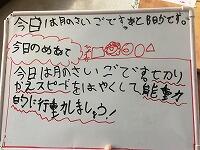 今日は月のさいごです。あと8日かです。
今日のめあて
今日は月のさいごですてっかり
かえスピードをはやくして能動
的に行動しましょう！